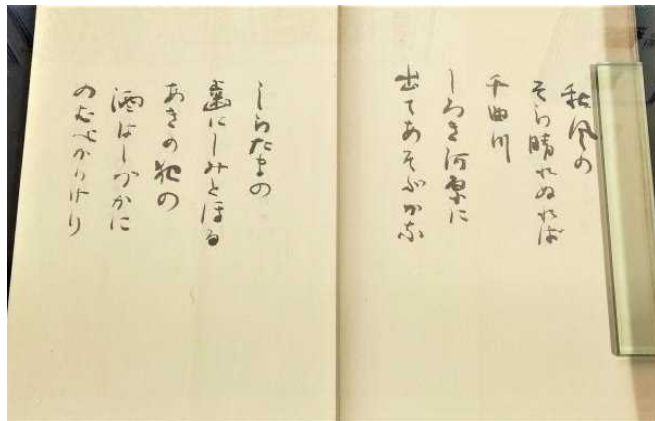 秋風の
そら晴れぬれば
千曲川
しろき河原に
出てあそぶかな
しらたまの
歯にしみとほる
あきの夜の
酒はしづかに
のむべかりけり